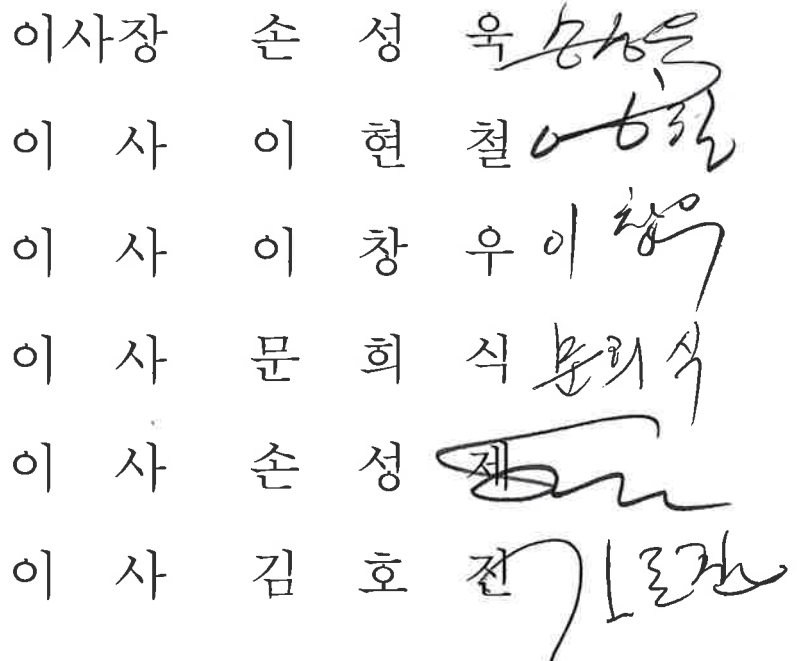 이사장 손 성 욱 손성욱
이 사 이 현 철
이 사 이 창 우 이창우
이 사 문 희 식 문희식
이 사 손 성 제
이 사 김 호 진